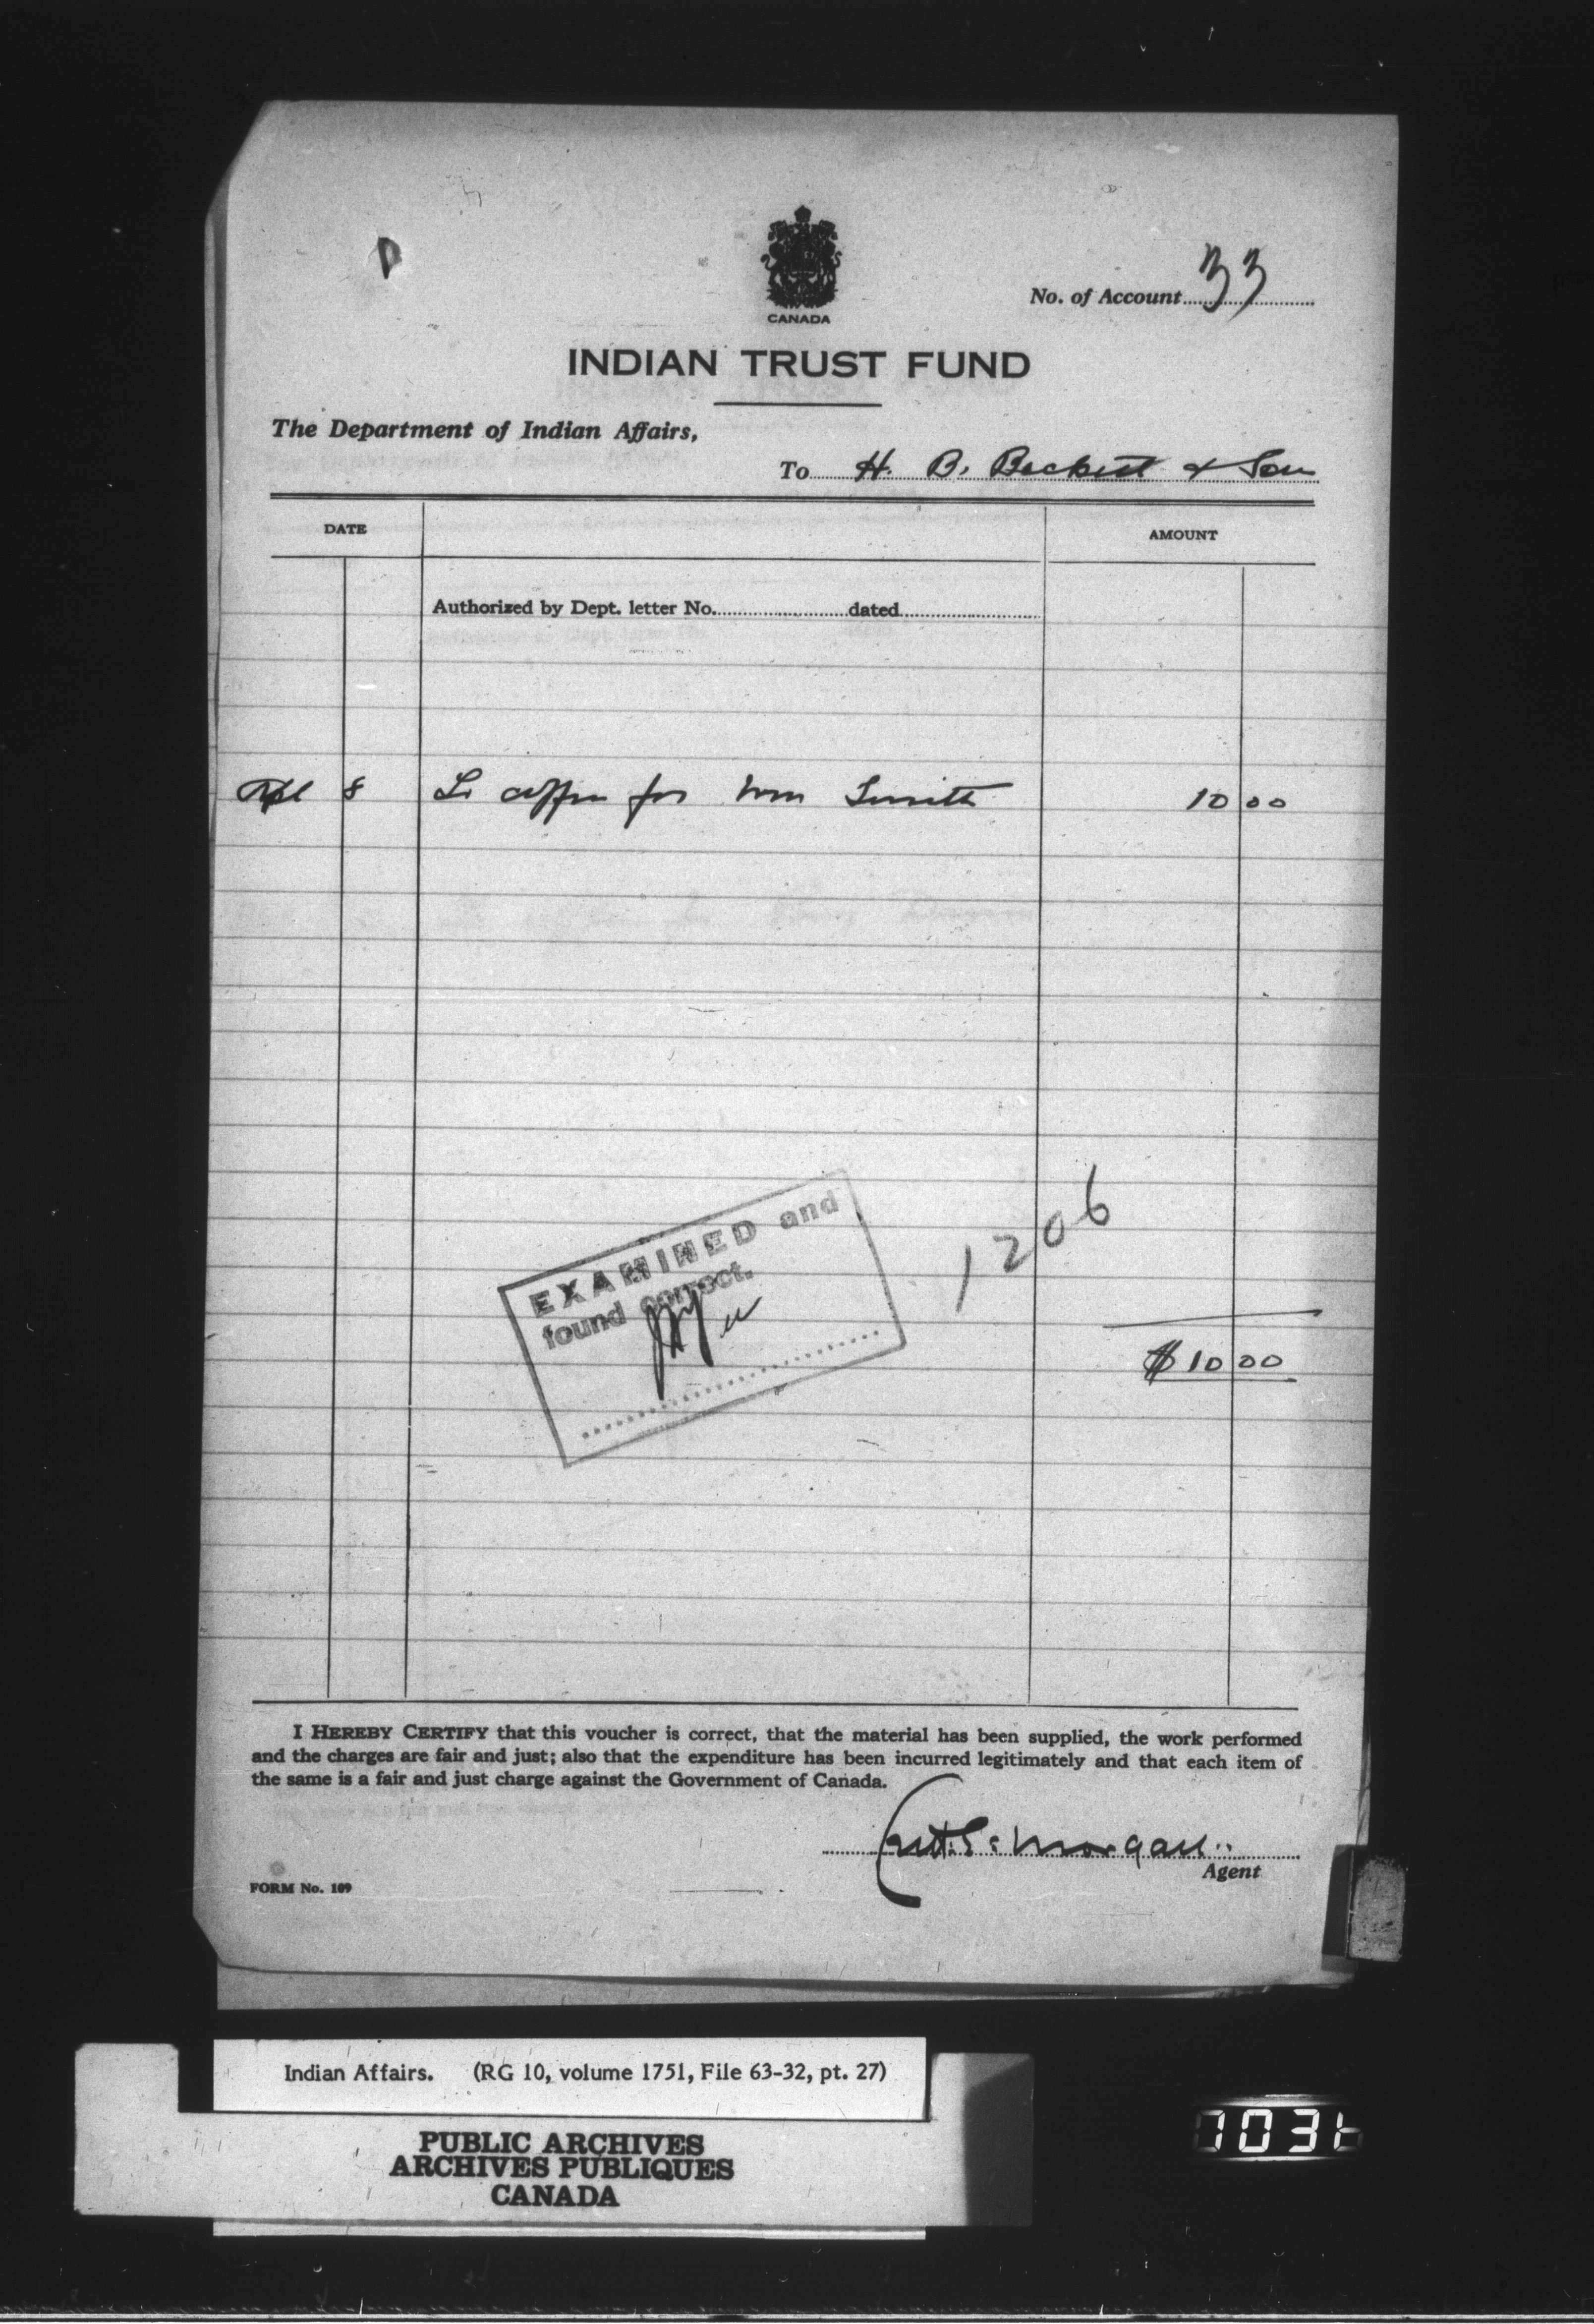 No. of Account 33
CANADA
INDIAN TRUST FUND
The Department of Indian Affairs,
To H. B. Beckett & Son
DATE
AMOUNT
Authorized by Dept. letter No. dated
8 To coffin for Wm Smith 10 00
EXAMINED and
found correct.
1206
$ 10 00
I HEREBY CERTIFY that this voucher is correct, that the material has been supplied, the work performed
and the charges are fair and just; also that the expenditure has been incurred legitimately and that each item of
the same is a fair and just charge against the Government of Canada.
Morgan
Agent
FORM No. 109
Indian Affairs. (RG 10, volume 1751, File 63-32, pt. 27)
PUBLIC ARCHIVES
ARCHIVES PUBLIQUES
CANADA